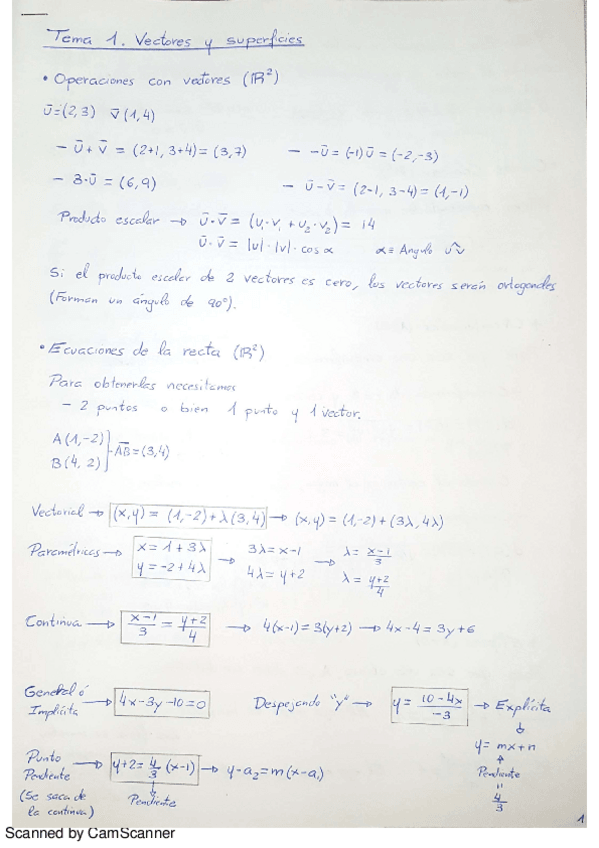 Tema 1. Vectores y superficies
• Operaciones con vectores (ℝ²)
ū=(2,3) v̄(1,4)
– ū+v̄ = (2+1, 3+4)=(3,7) – -ū=(-1)ū=(-2,-3)
– 3·ū=(6,9) – ū-v̄ = (2-1, 3-4)=(1,-1)
Producto escalar → ū·v̄ = (u₁·v₁ + u₂·v₂)= 14
ū·v̄ = |u|·|v|·cos α α≡Angulo uv
Si el producto escalar de 2 vectores es cero, los vectores serán ortogonales
(Forman un ángulo de 90°).
• Ecuaciones de la recta (ℝ²)
Para obtenerlas necesitamos
– 2 puntos o bien 1 punto y 1 vector.
A(1,-2)
B(4, 2)
AB=(3,4)
Vectorial → (x,y) = (1,-2)+λ(3,4) → (x,y) = (1,-2)+(3λ,4λ)
Paramétricas → x=1+3λ → 3λ=x-1 → λ= (x-1)/3
y=-2+4λ 4λ=y+2 λ= (y+2)/4
Continua → (x-1)/3 = (y+2)/4 → 4(x-1)=3(y+2) → 4x-4=3y+6
General ó
Implícita → 4x-3y-10=0 Despejando "y" → y= (10-4x)/-3 → Explícita
y= mx+n
Pendiente
=
4/3
Punto
Pendiente → y+2= 4/3 (x-1) → y-a₂=m(x-a₁)
(Se saca de
la continua) Pendiente
1
Scanned by CamScanner